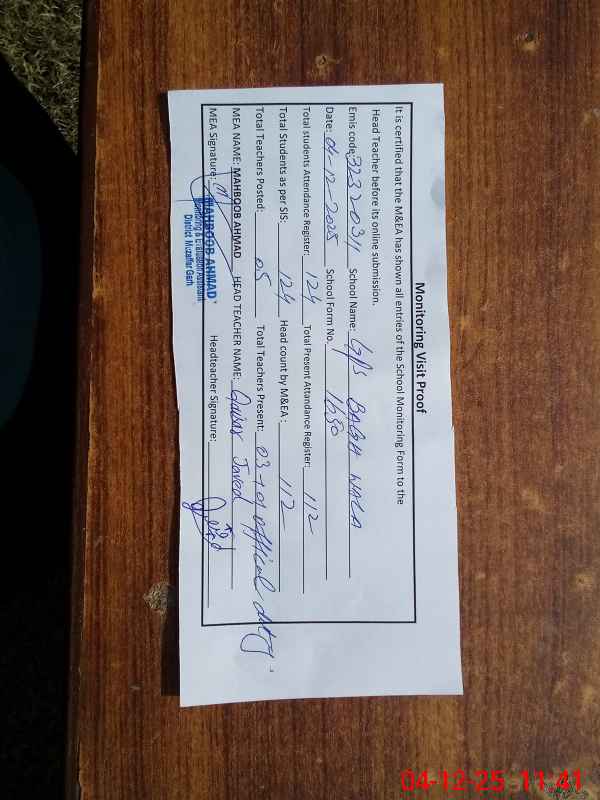 Monitoring Visit Proof
It is certified that the M&EA has shown all entries of the School Monitoring Form to the
Head Teacher before its online submission.
Emis code: 32320311 School Name: GPS BAGH WALA
Date: 04-12-2025 School Form No. 1650
Total students Attendance Register: 124 Total Present Attandance Register: 112
Total Students as per SIS: 124 Head count by M&EA : 112
Total Teachers Posted: 05 Total Teachers Present: 03+01 official duty
MEA NAME: MAHBOOB AHMAD HEAD TEACHER NAME: Javed
MEA Signature: Headteacher Signature:
MAHBOOB AHMAD
Monitoring & Evaluation Assistant
District Muzaffar Garh
04-12-25 11:41